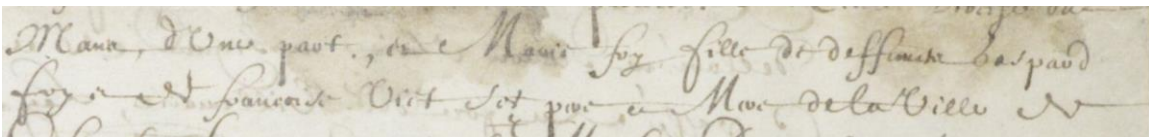 Mans, d'Une part, et Marie foy fille de deffunct Gaspard
foy et de françoise Viet ses pere et Mere de la Ville de